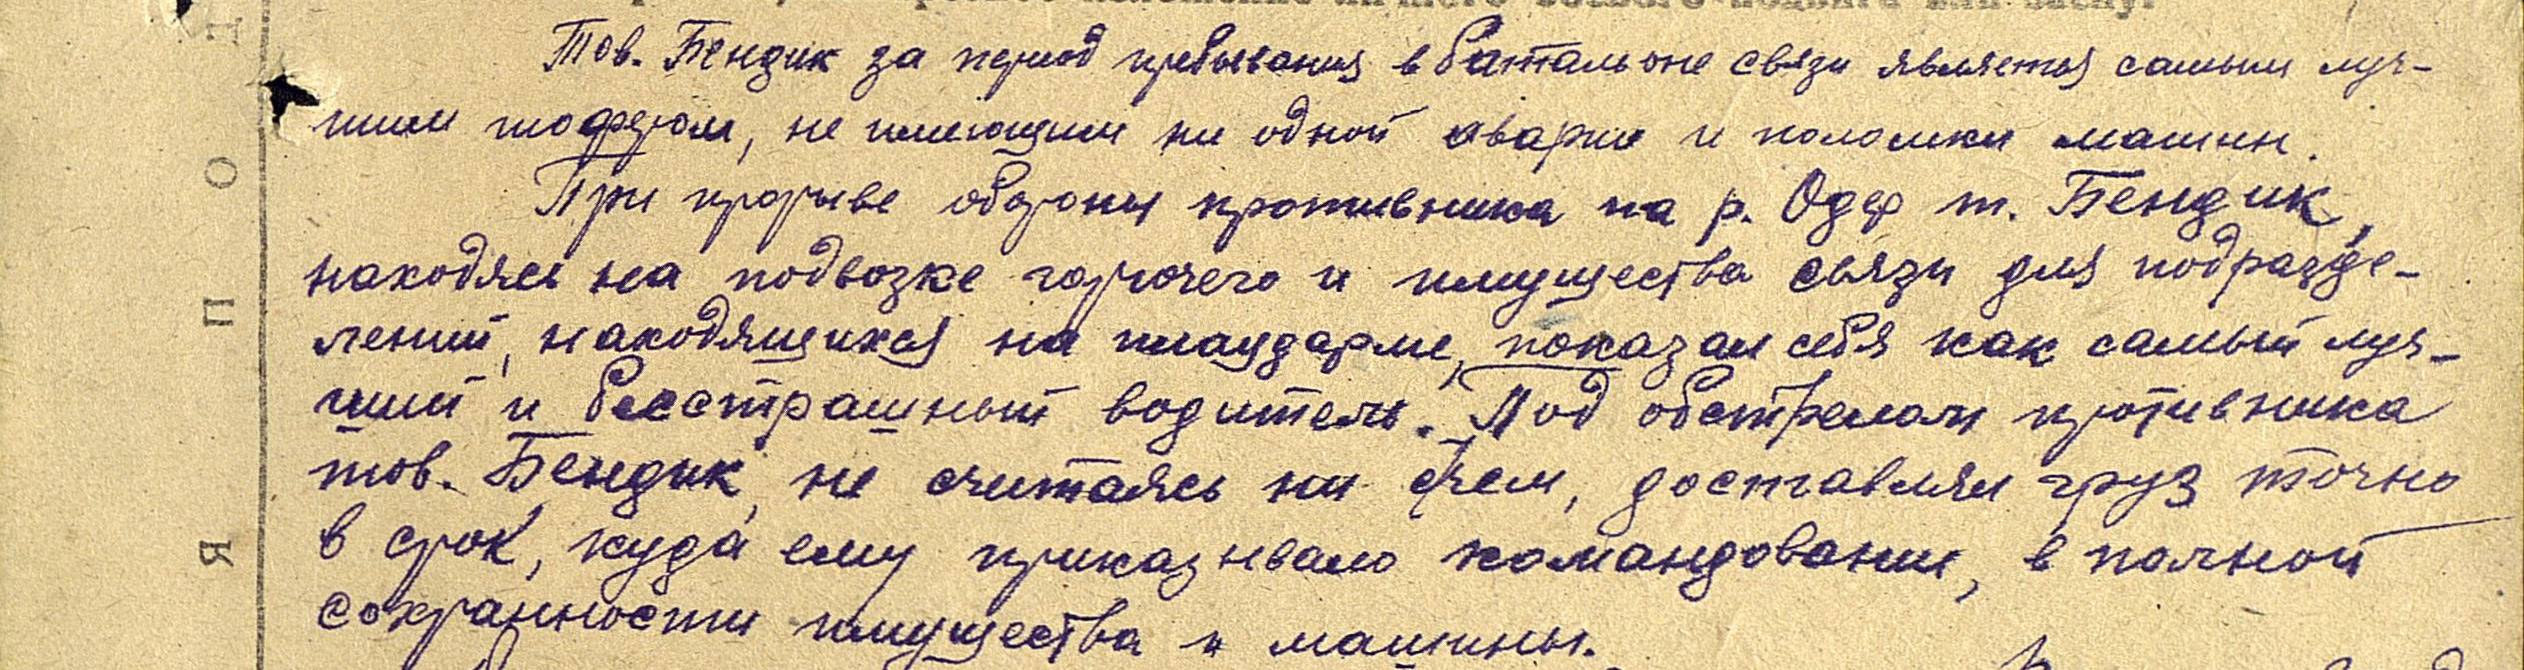 Тов. Бендик за период пребывания в батальоне связи является самым луч-
шим шофером, не имеющим ни одной аварии и поломки машин.
При прорыве обороны противника на р. Одер т. Бендик,
находясь на подвозке горючего и имущества связи для подразде-
лений, находящихся на плацдарме, показал себя как самый луч-
ший и бесстрашный водитель. Под обстрелом противника
тов. Бендик, не считаясь ни с чем, доставлял груз точно
в срок, куда ему приказывало командование, в полной
сохранности имущества и машины.